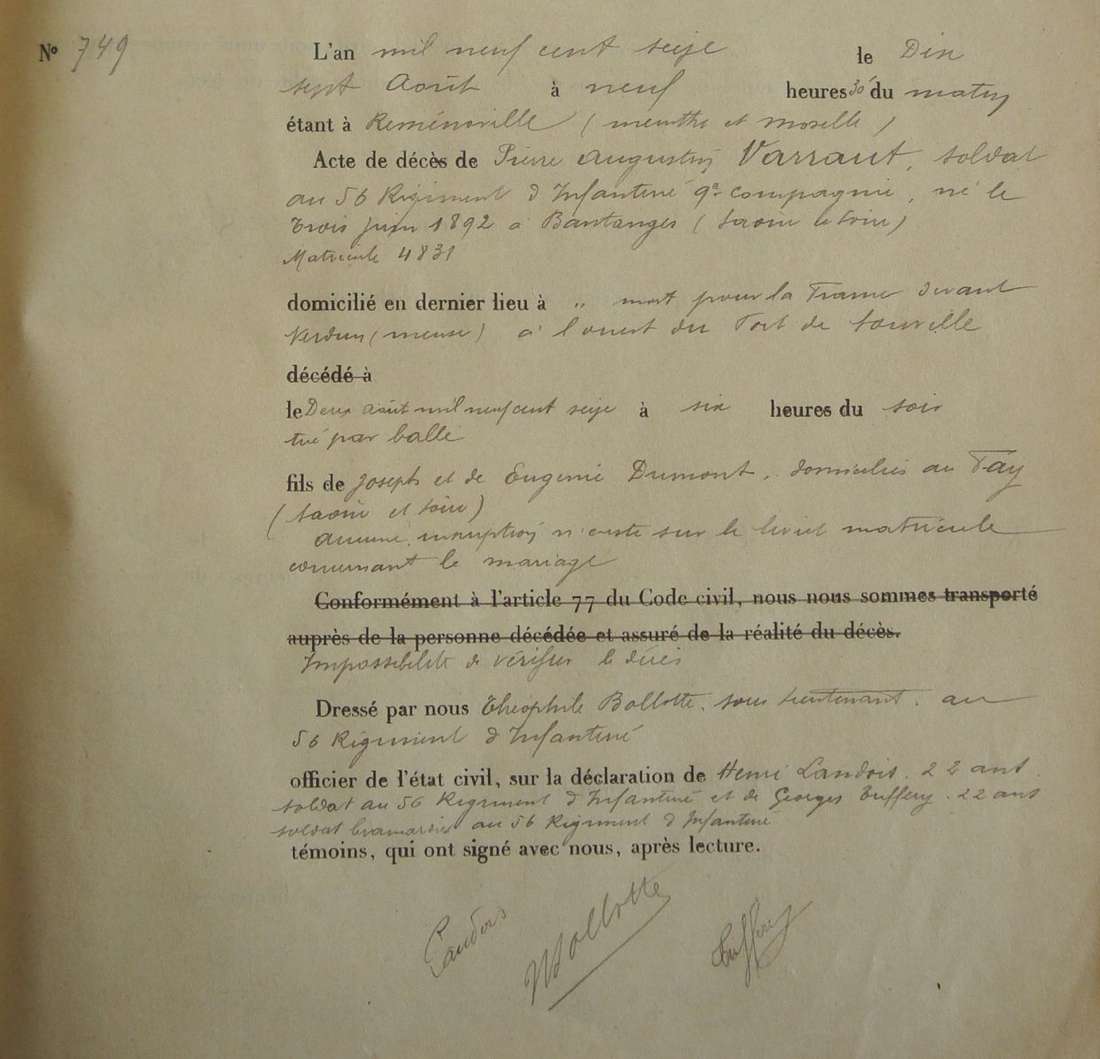 N° 749
L'an mil neuf cent seize le Dix
sept Août à neuf heures 30' du matin
étant à Reménoville (meurthe et moselle)
Acte de décès de Pierre Augustin Varraut, soldat
au 56 Régiment d'Infanterie 9e compagnie, né le
trois juin 1892 à Bantanges (Saone et Loire)
Matricule 4831
domicilié en dernier lieu à " mort pour la France devant
Verdun (meuse) à l'ouest du Fort de Souville
décédé à
le Deux août mil neuf cent seize à six heures du soir
tué par balle
fils de Joseph et de Eugenie Dumont, domiciliés au Fay
(Saone et Loire)
aucune inscription n'existe sur le livret matricule
concernant le mariage
Conformément à l'article 77 du Code civil, nous nous sommes transporté
auprès de la personne décédée et assuré de la réalité du décès.
Impossibilité de vérifier le décès
Dressé par nous Théophile Bollotte, sous lieutenant, au
56 Régiment d'Infanterie
officier de l'état civil, sur la déclaration de Henri Landois, 22 ans
soldat au 56 Régiment d'Infanterie et de Georges Buffery, 22 ans
soldat brancardier au 56 Régiment d'Infanterie
témoins, qui ont signé avec nous, après lecture.
Landois Bollotte Buffery